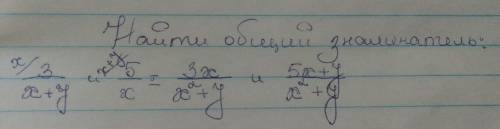 Найти общий знаменатель:
x/ 3/(x+y) и x+y/ 5/x = 3x/(x²+y) и 5x+y/(x²+y)